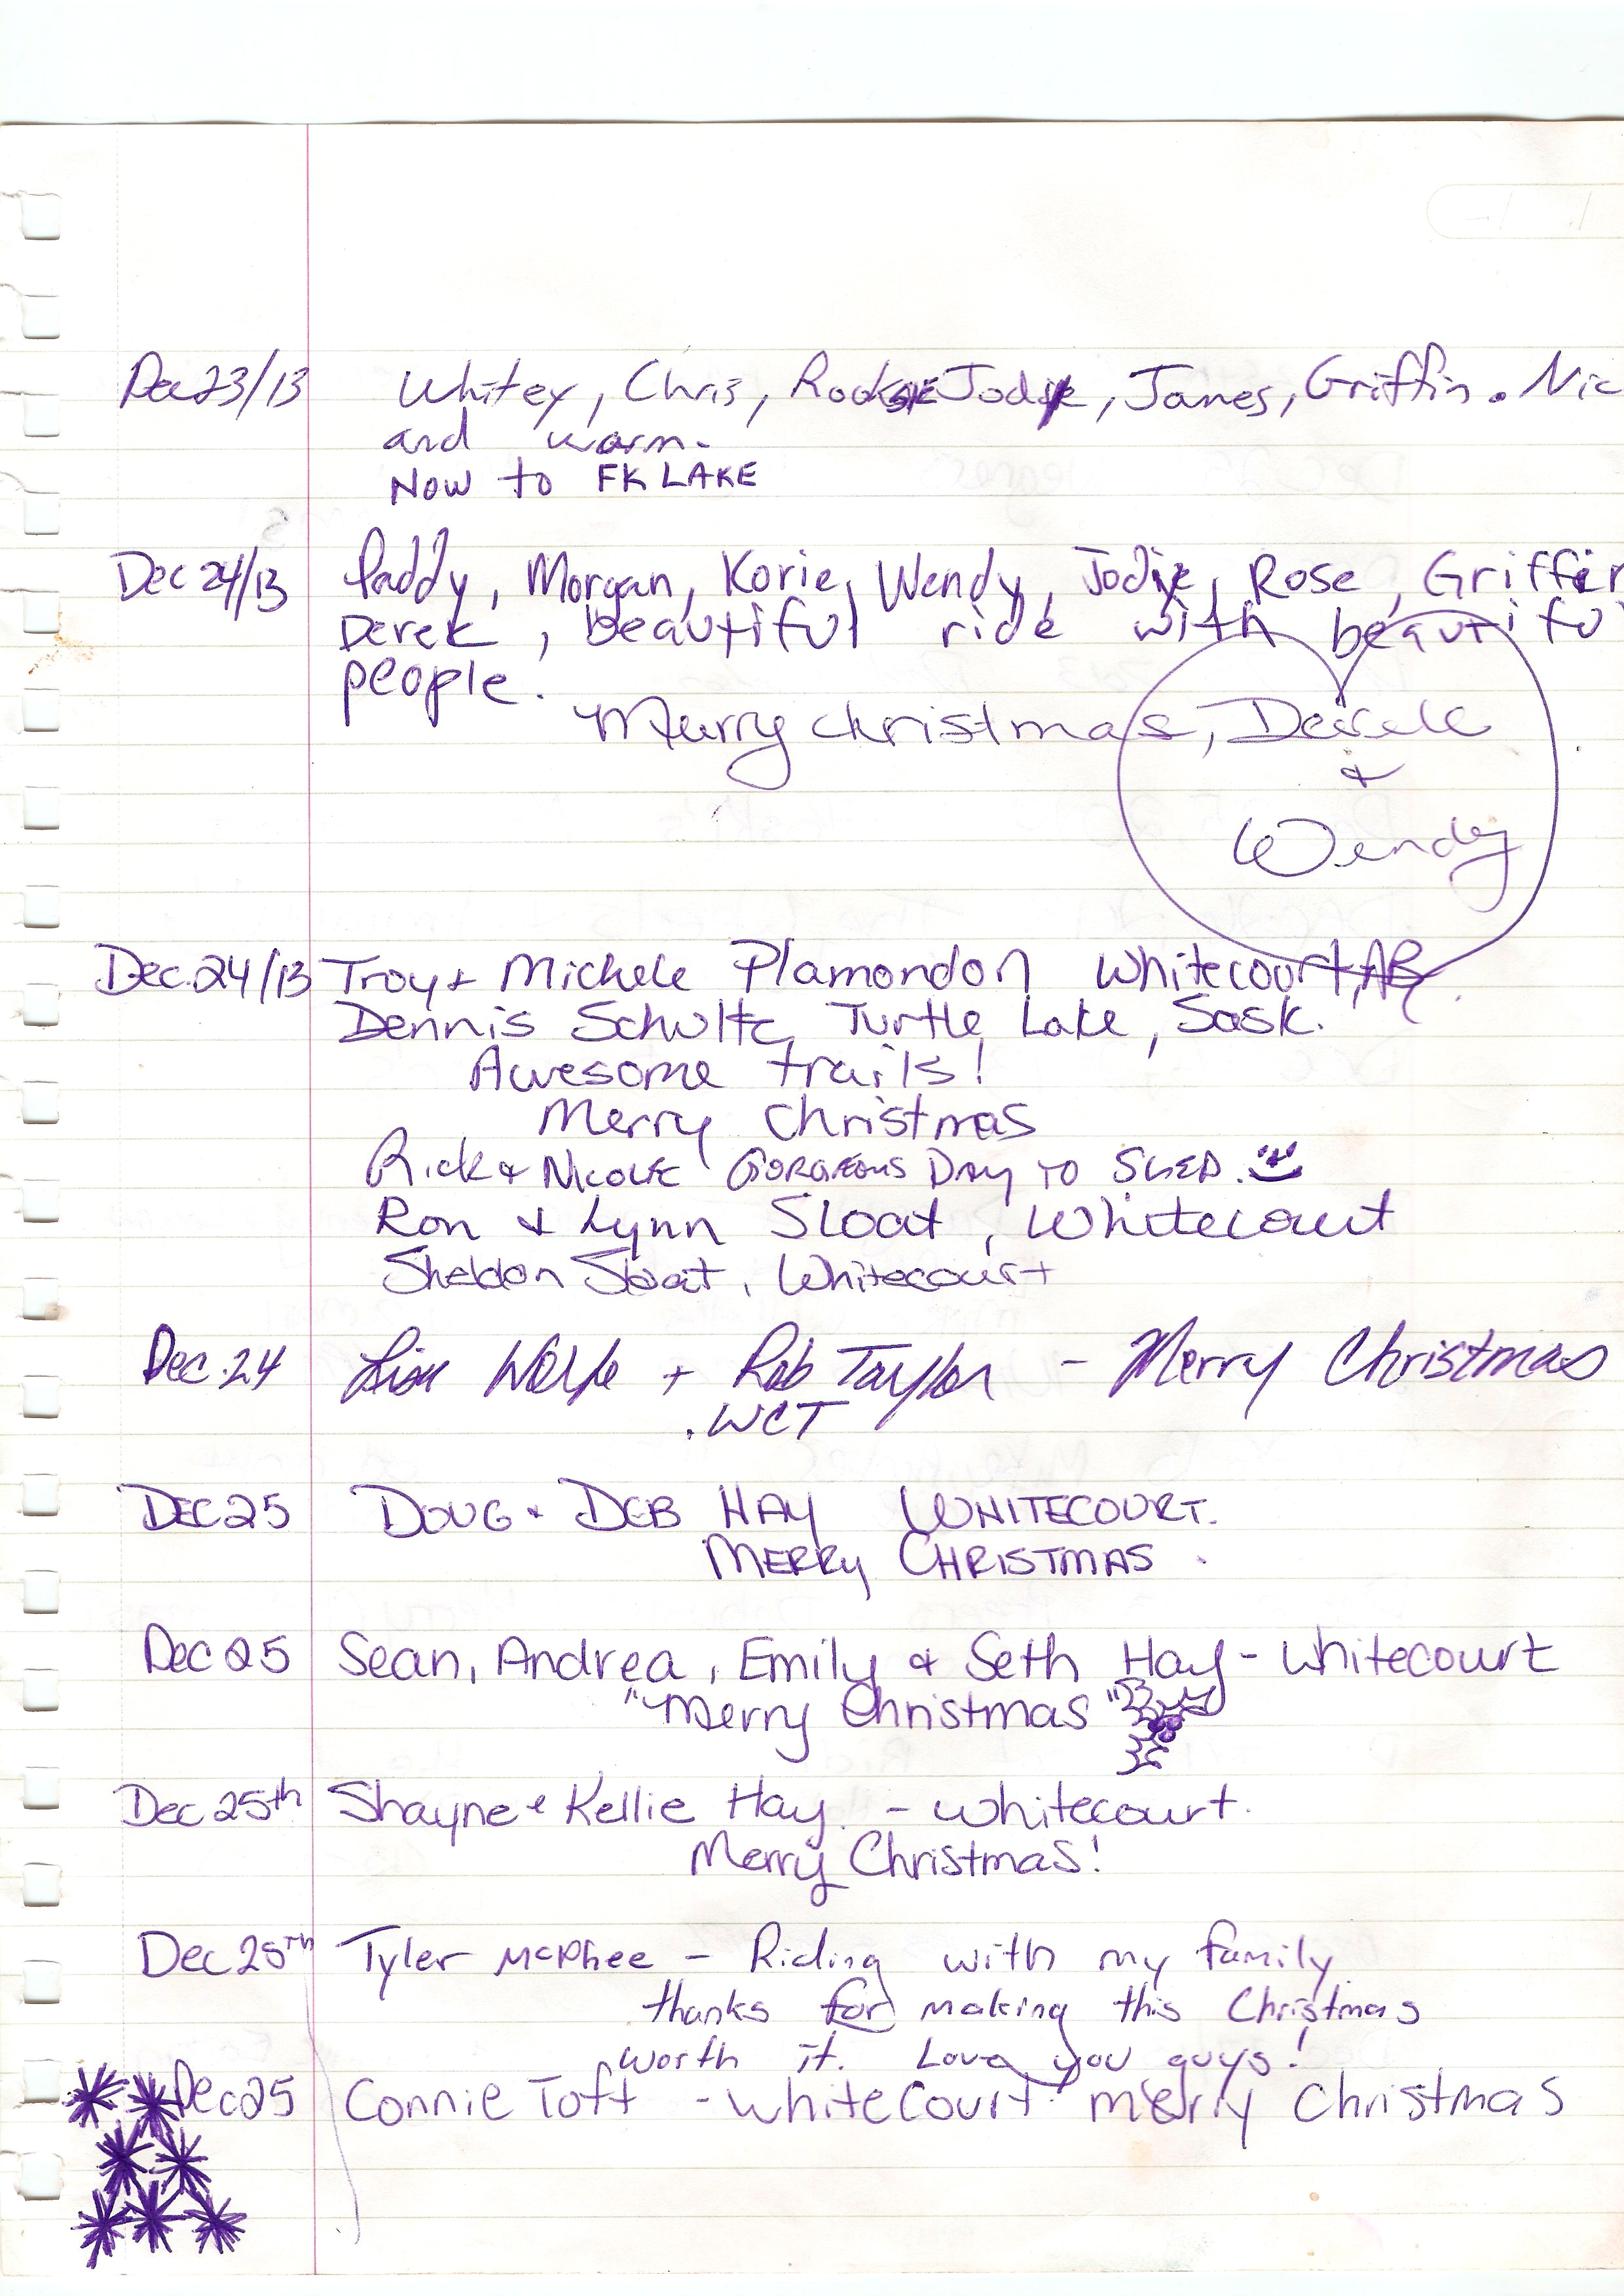 Dec 23/13 Whitey, Chris, Jodie, James, Griffin. Nic
and warm.
NOW to FK LAKE
Dec 24/13 Paddy, Morgan, Korie, Wendy, Jodie, Rose, Griffin
Derek, beautiful ride with beautiful
people.
Merry christmas, Derek
&
Wendy
Dec. 24/13 Troy & Michele Plamondon Whitecourt, AB.
Dennis Schultz, Turtle Lake, Sask.
Awesome trails!
Merry Christmas
Rick & NICOLE GORGEOUS DAY TO SLED.
Ron & Lynn Sloat, Whitecourt
Sheldon Sloat, Whitecourt
Dec. 24 Lisa Wolfe + Rob Taylor - Merry Christmas
. WCT
DEC 25 DOUG & DEB HAY WHITECOURT.
MERRY CHRISTMAS.
Dec 25 Sean, Andrea, Emily & Seth Hay - Whitecourt
"Merry Christmas"
Dec 25th Shayne & Kellie Hay. - Whitecourt.
Merry Christmas!
Dec 25TH Tyler McPhee - Riding with my family
thanks for making this Christmas
worth it. Love you guys!
Dec 25 Connie Toft - Whitecourt merry Christmas